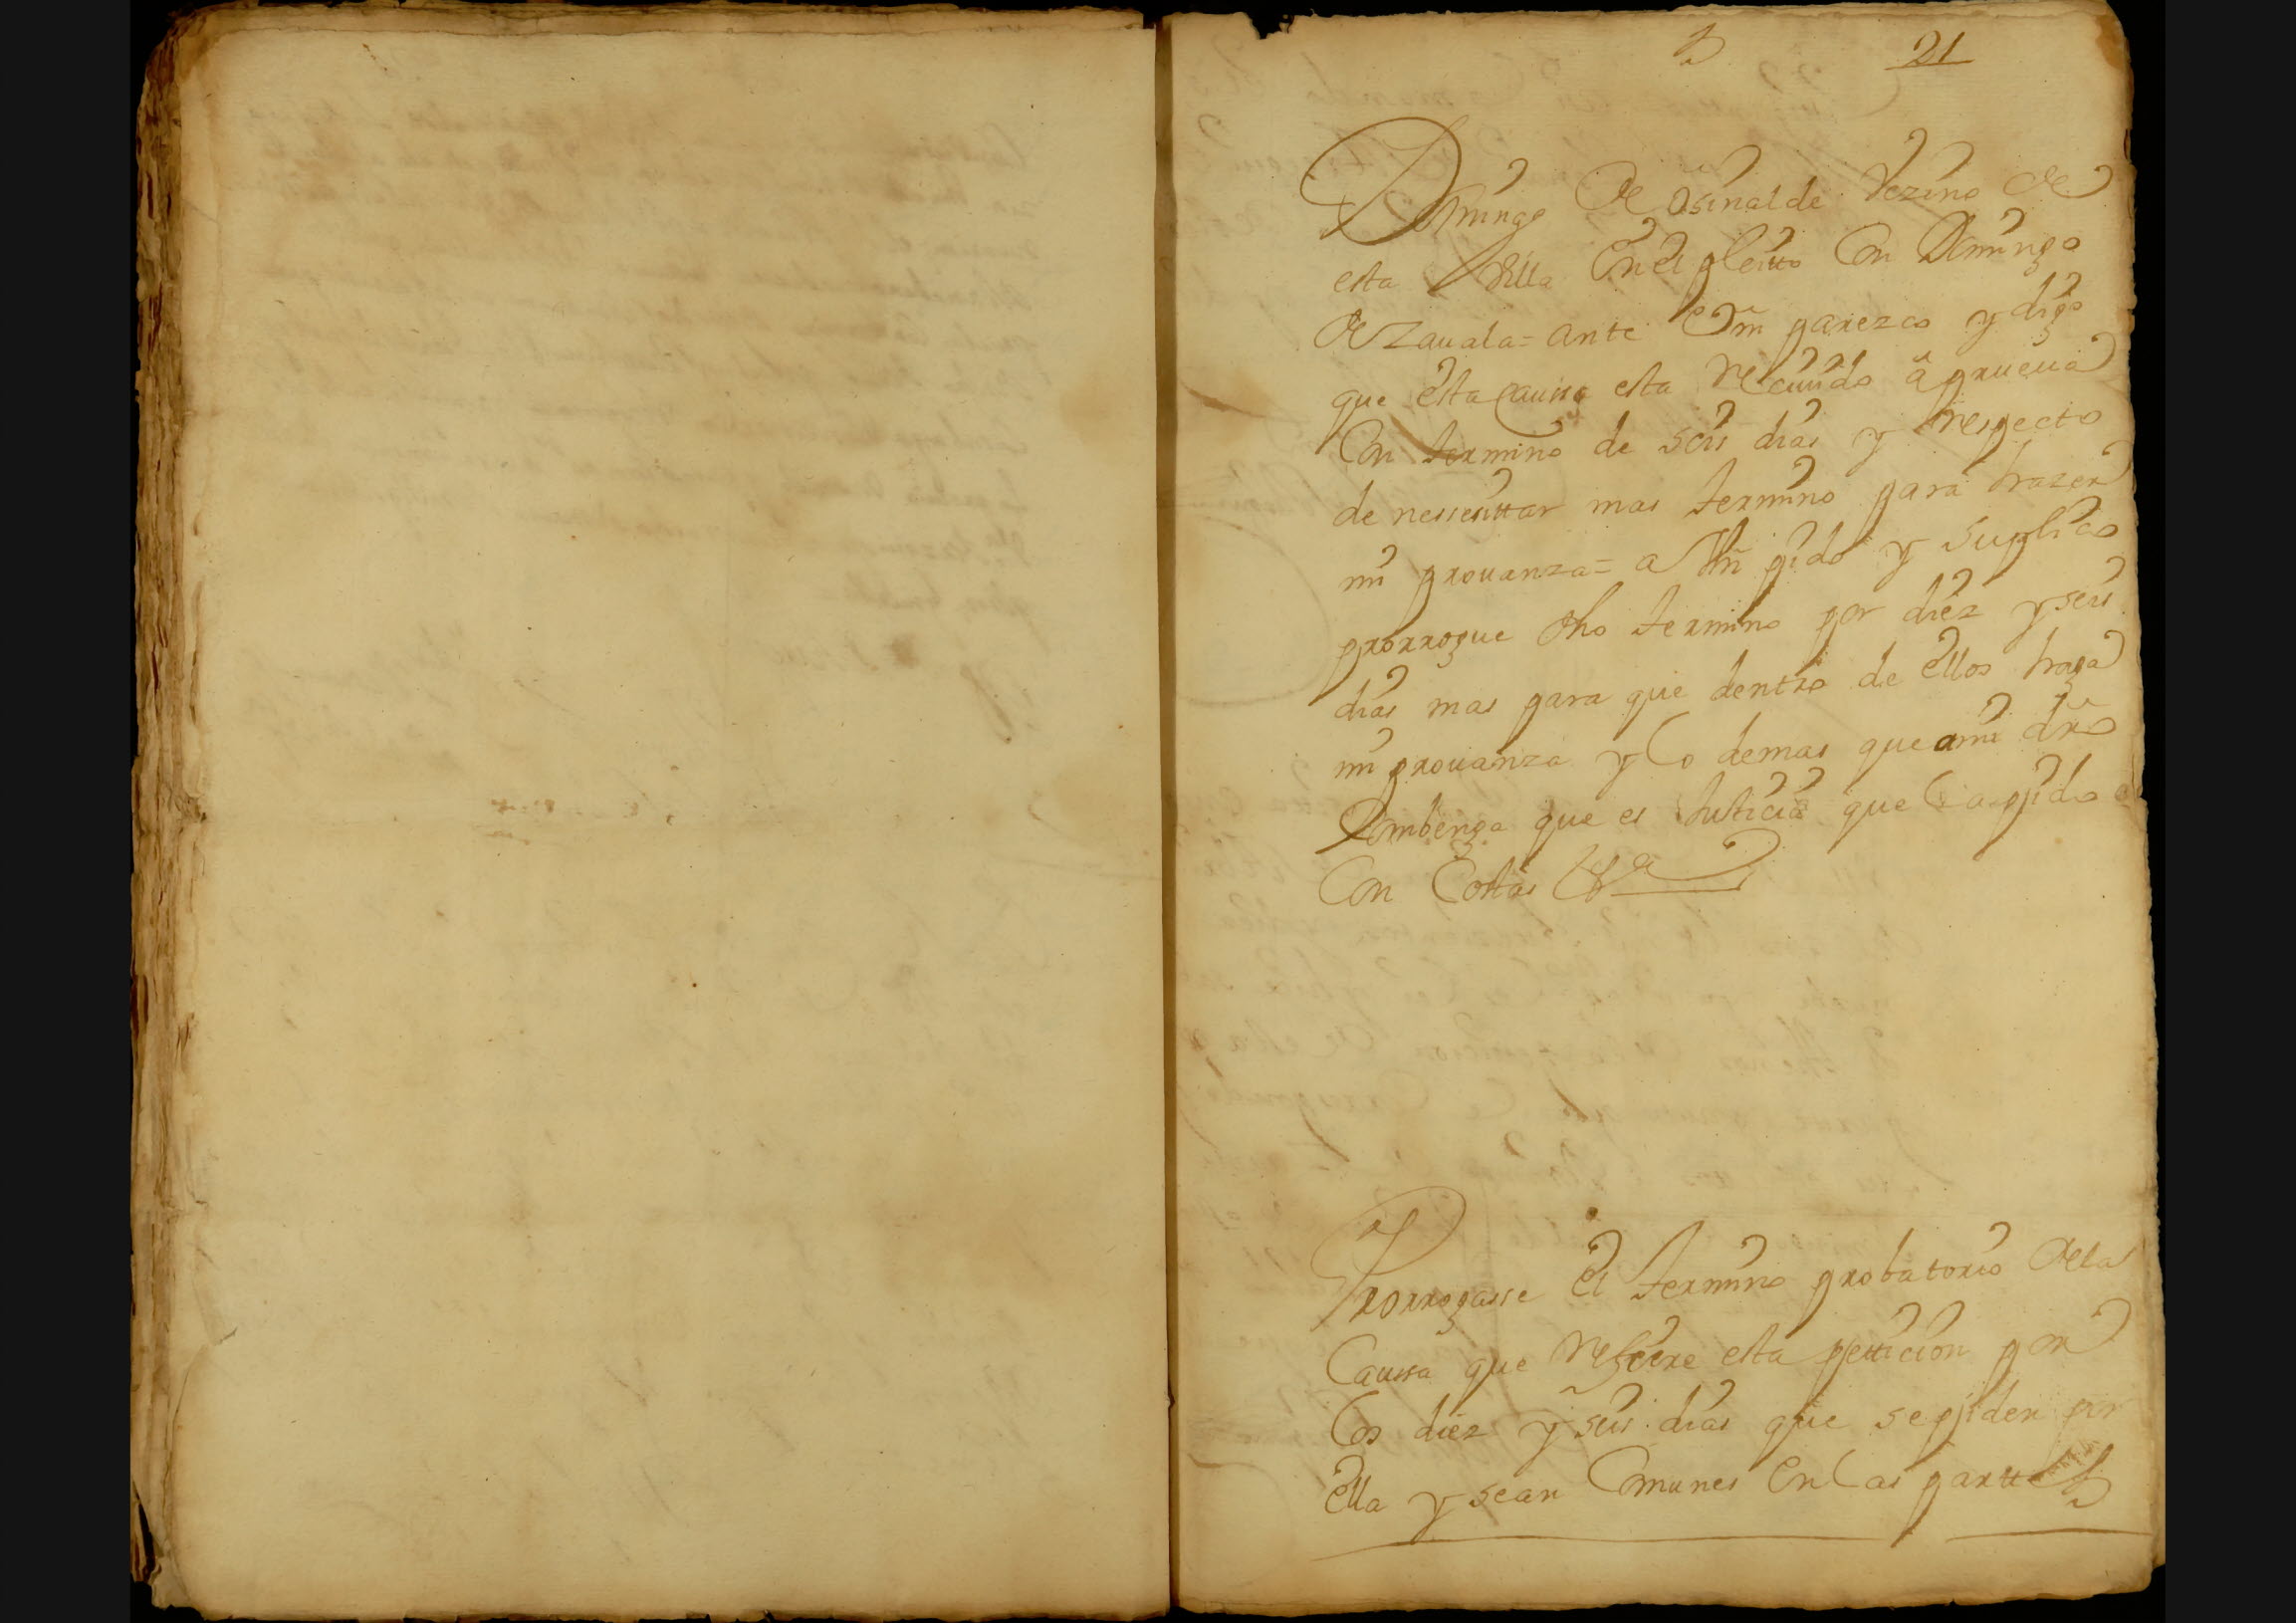 21
Domingo de osinalde Vezino de
esta Villa En el pleitto Con Domingo
de Zauala = ante Vm parezco y digo
que esta Caussa esta Recivido â prueua
Con termino de seis dias y respecto
de nessesittar mas termino para hazer
mi prouanza = a Vm pido y suplico
prorrogue dho termino por diez y seis
dias mas para que dentro de ellos haga
mi prouanza y lo demas que a mi dro
Combenga que es Justicia que la pido
Con Costas &a
Prorrogasse El termino probatorio de la
Caussa que refiere esta petticion por
los diez y seis dias que se piden por
Ella y sean Comunes En las parttes